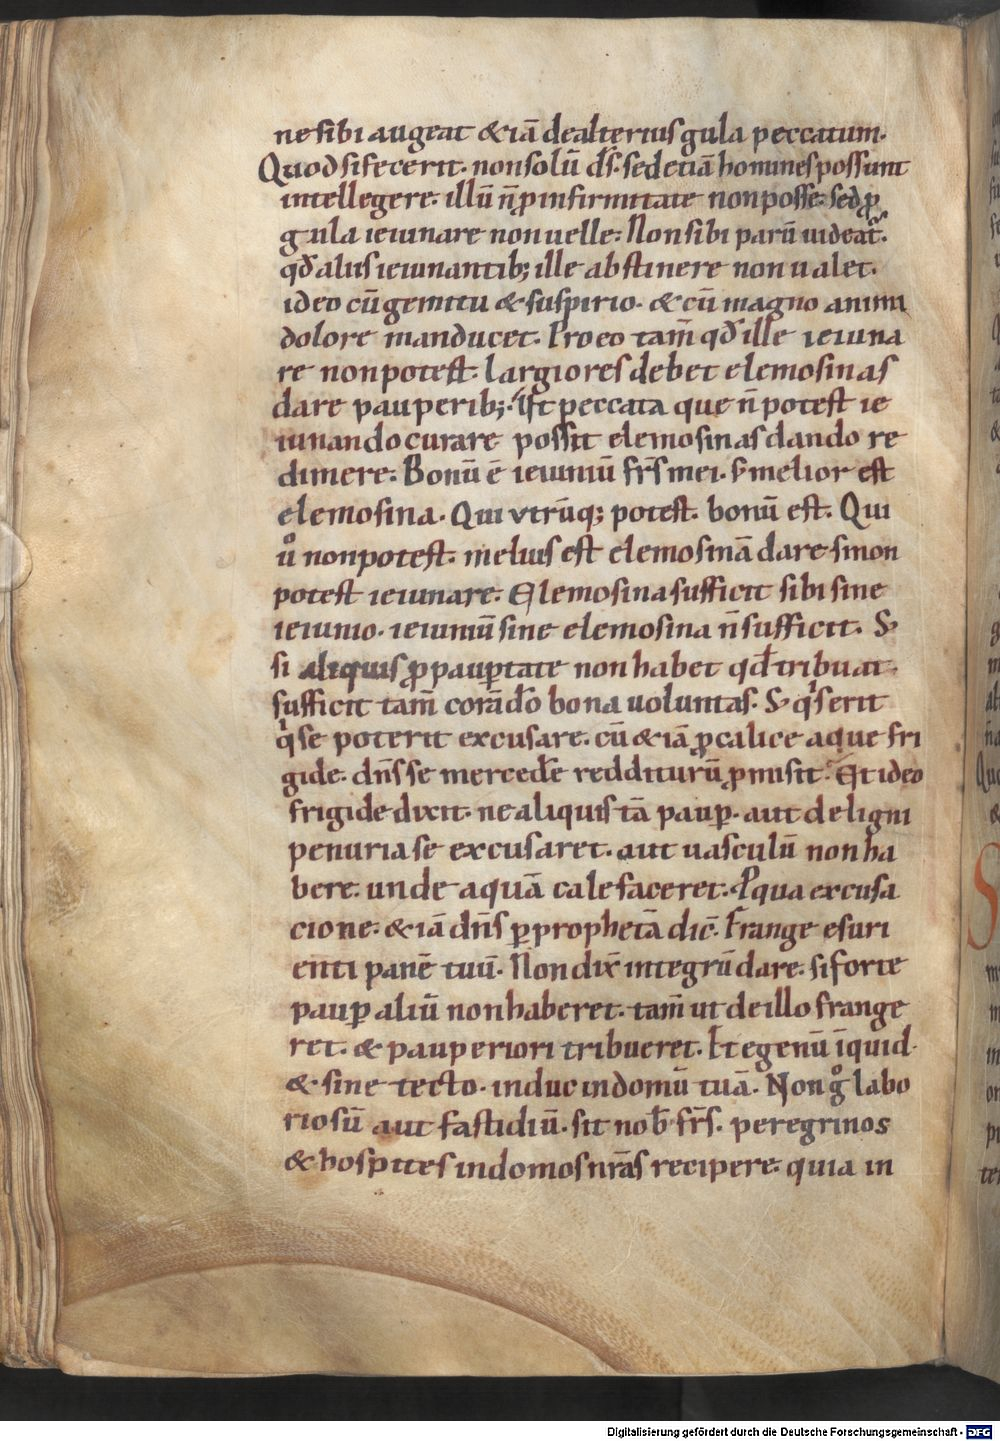 ne sibi augeat & iā de alterius gula peccatum.
Quod si fecerit. non solū ds̄. sed etiā homines possunt
intellegere. illū n̄ ꝓ infirmitate non posse. sed ꝓ
gula ieiunare non uelle. Non sibi parū uideat᷑.
qd̄ aliis ieiunantib; ille abstinere non ualet.
ideo cū gemitu & suspirio. & cū magno animi
dolore manducet. Pro eo tam̄ qd̄ ille ieiuna
re non potest. largiores debet elemosinas
dare pauperib;. ut peccata que n̄ potest ie
iunando curare possit elemosinas dando re
dimere. Bonū ē ieiuniū frs̄ mei. s; melior est
elemosina. Qui utrūq; potest. bonū est. Qui
uͦ non potest. melius est elemosinā dare si non
potest ieiunare. Elemosina sufficit sibi sine
ieiunio. ieiuniū sine elemosina n̄ sufficit. S;
si aliquis ꝓ pauꝑtate non habet qd̄ tribuat.
sufficit tam̄ corā do̅ bona uoluntas. S; qͥs erit
qͥ se poterit excusare. cū & iā ꝓ calice aque fri
gide. dn̄s se mercede̅ redditurū ꝓmisit. Et ideo
frigide dixit. ne aliquis tā pauꝑ. aut de ligni
penuria se excusaret. aut uasculū non ha
bere. unde aquā calefaceret. P qua excusa
cione. & iā dn̄s ꝑ prophetā dic̄. Frange esuri
enti panē tuū. Non dix̄ integrū dare. si forte
pauꝑ aliū non haberet. tam̄ ut de illo frange
ret. & pauperiori tribueret. Et egenū īquid.
& sine tecto. induc in domū tuā. Non gͦ labo
riosū aut fastidiū. sit nob̄ frs̄. peregrinos
& hospites in domos nrās recipere. quia in
Digitalisierung gefördert durch die Deutsche Forschungsgemeinschaft - DFG